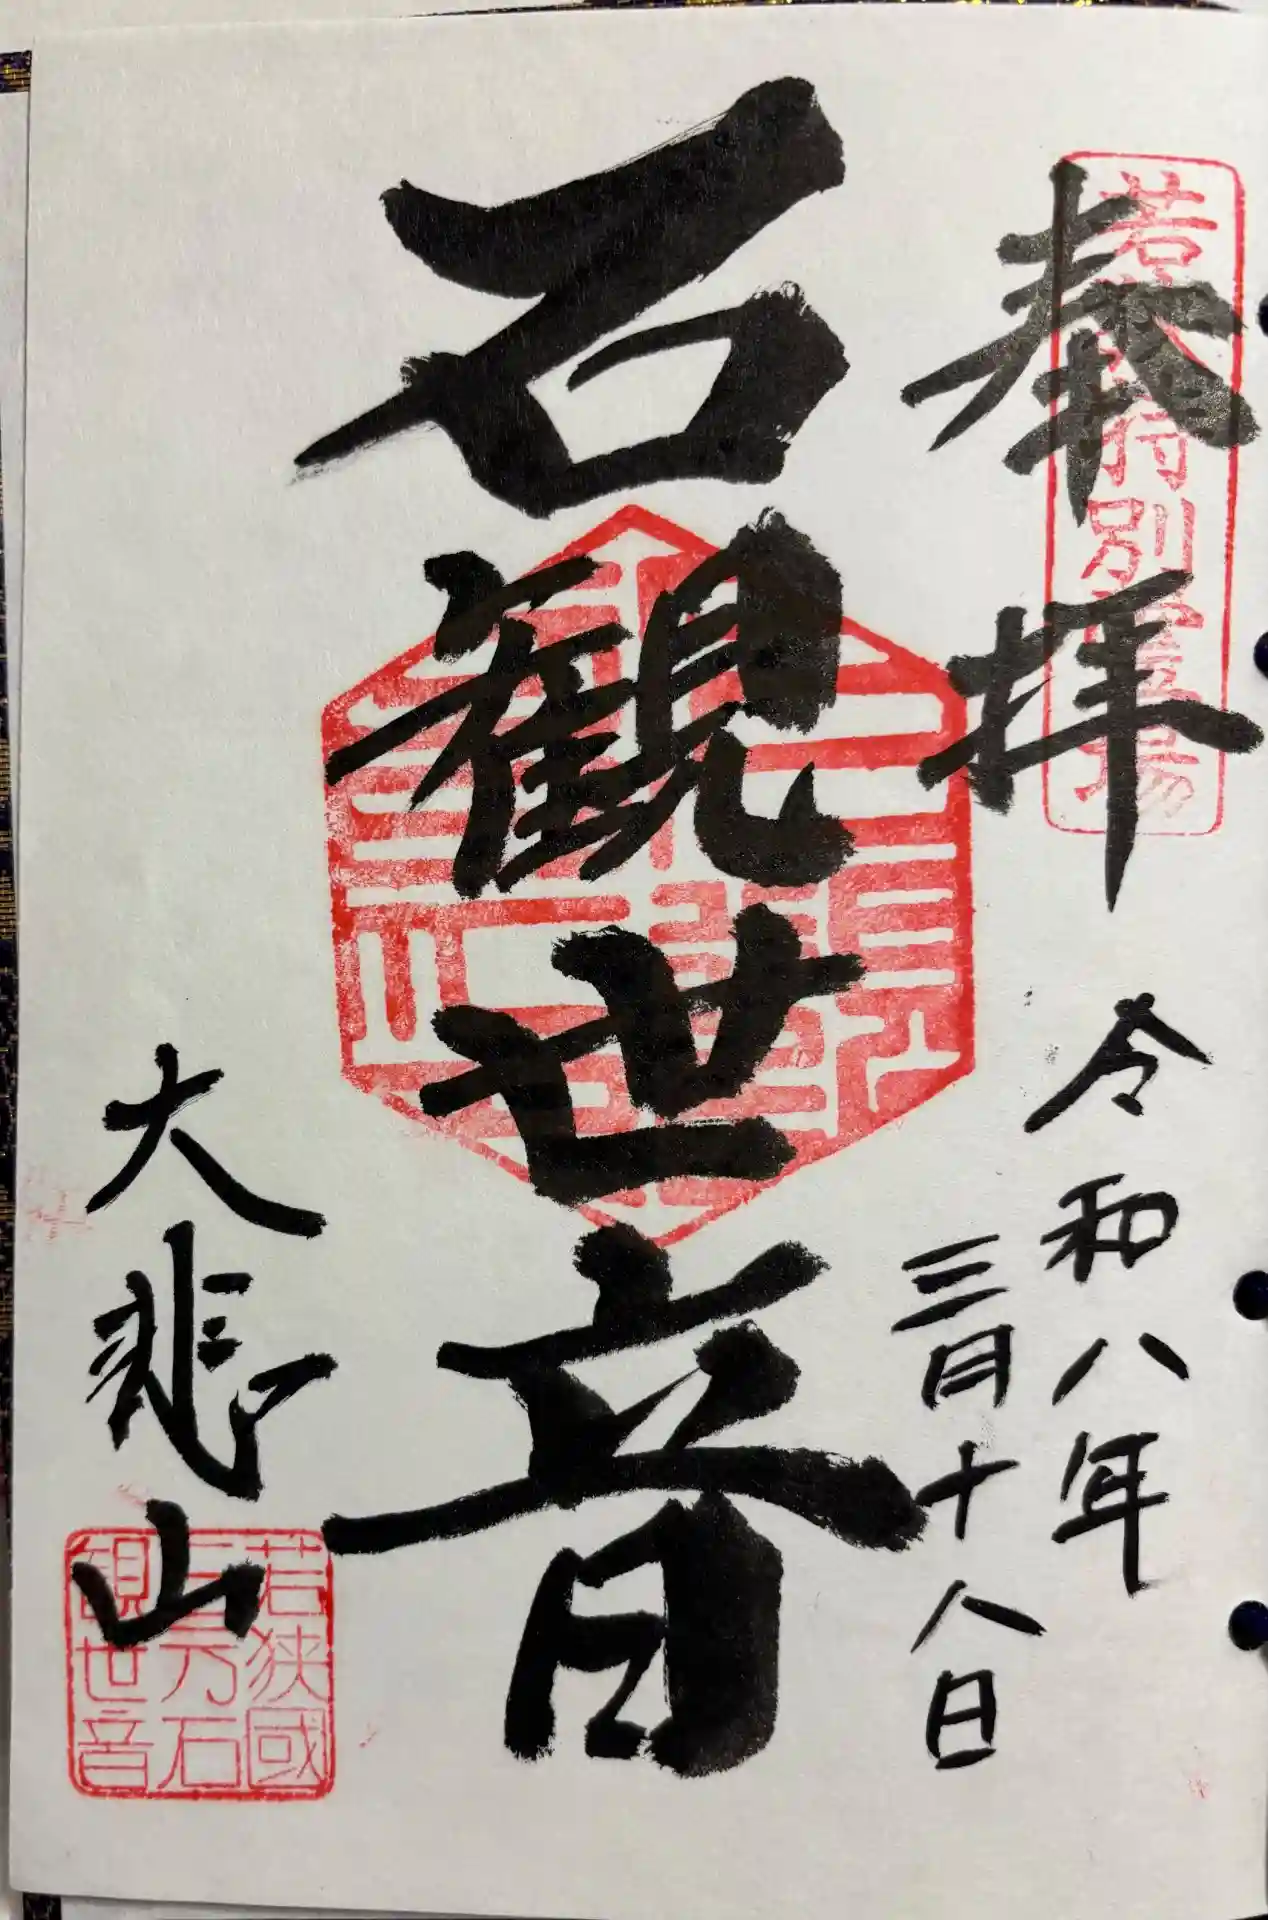 奉拝
令和八年
三月十八日
石観世音
大悲山
若狭國
三方石
観世音